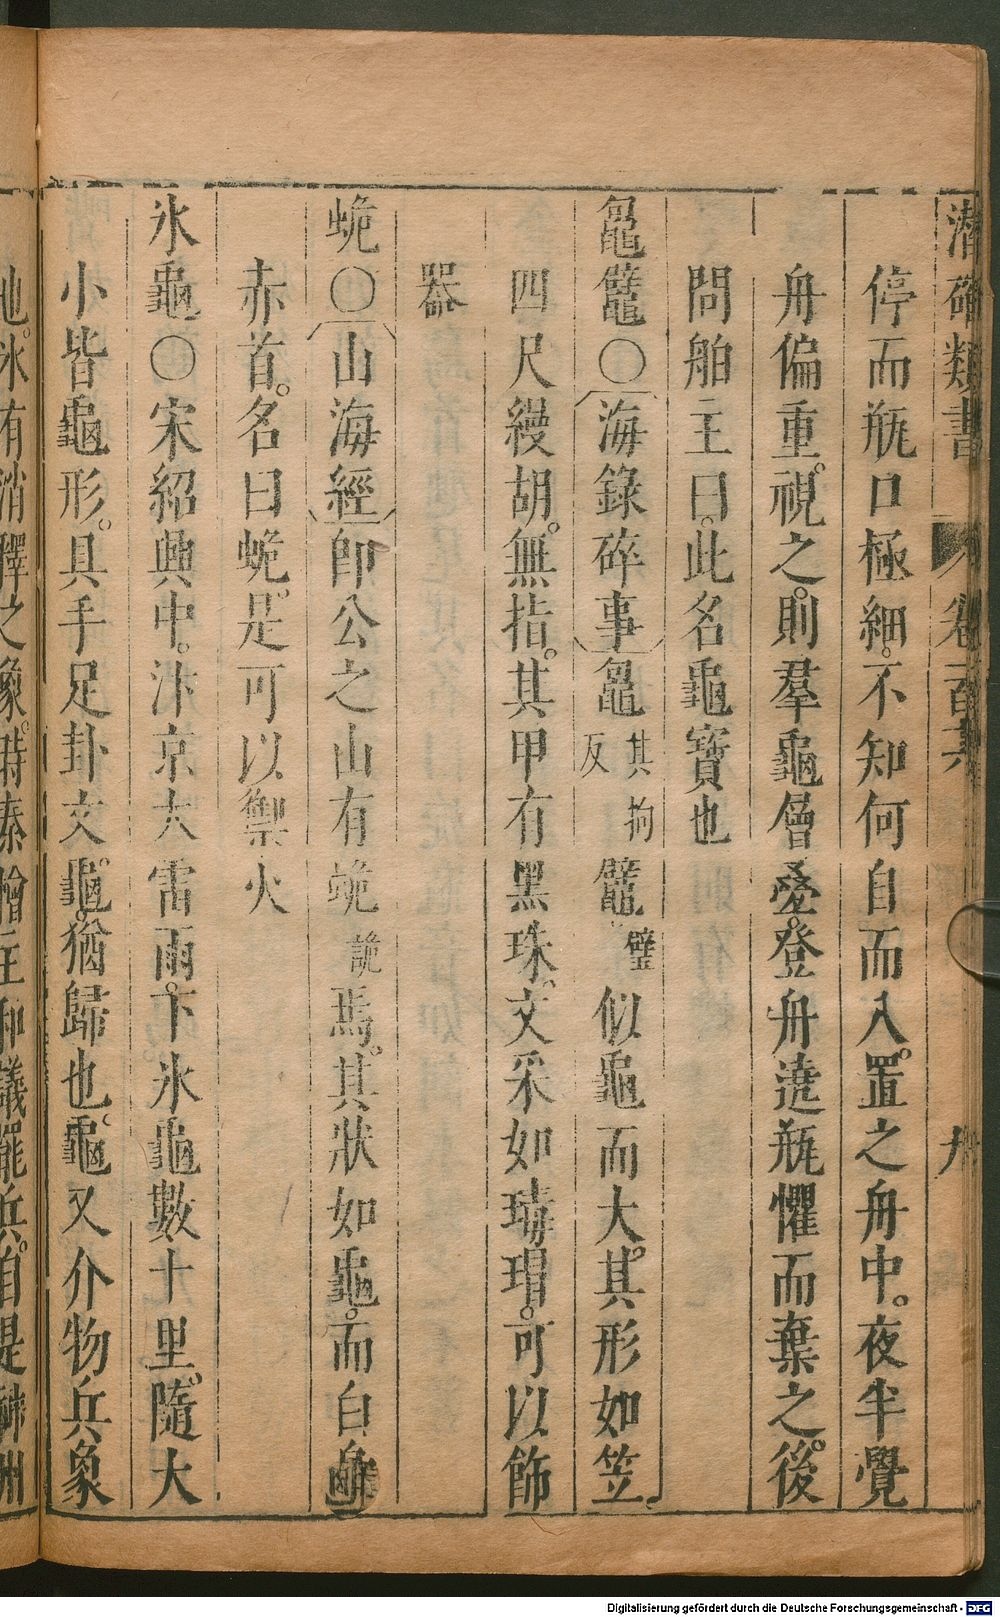 潛確類書 卷百 九
停而瓶口極細不知何自而入。置之舟中。夜半覺
舟偏重。視之。則羣龜層疊。登舟遶瓶懼而棄之。後
問舶主曰。此名龜寶也
鼂鼊〇海錄碎事鼂其拘反鼊璧似龜而大。其形如笠
四尺縵胡。無指。其甲有黑珠。文采如瑇瑁。可以飾
器
蛫〇山海經即公之山有蛫詭焉。其狀如龜。而白身
赤首。名曰蛫。是可以禦火
氷龜〇宋紹興中。汴京大雷雨。下氷龜數十里。隨大
小皆龜形。具手足卦文。龜。猶歸也。龜又介物兵象
也。氷有消釋之象。時秦檜主和議罷兵。自是神州
Digitalisierung gefördert durch die Deutsche Forschungsgemeinschaft - DFG